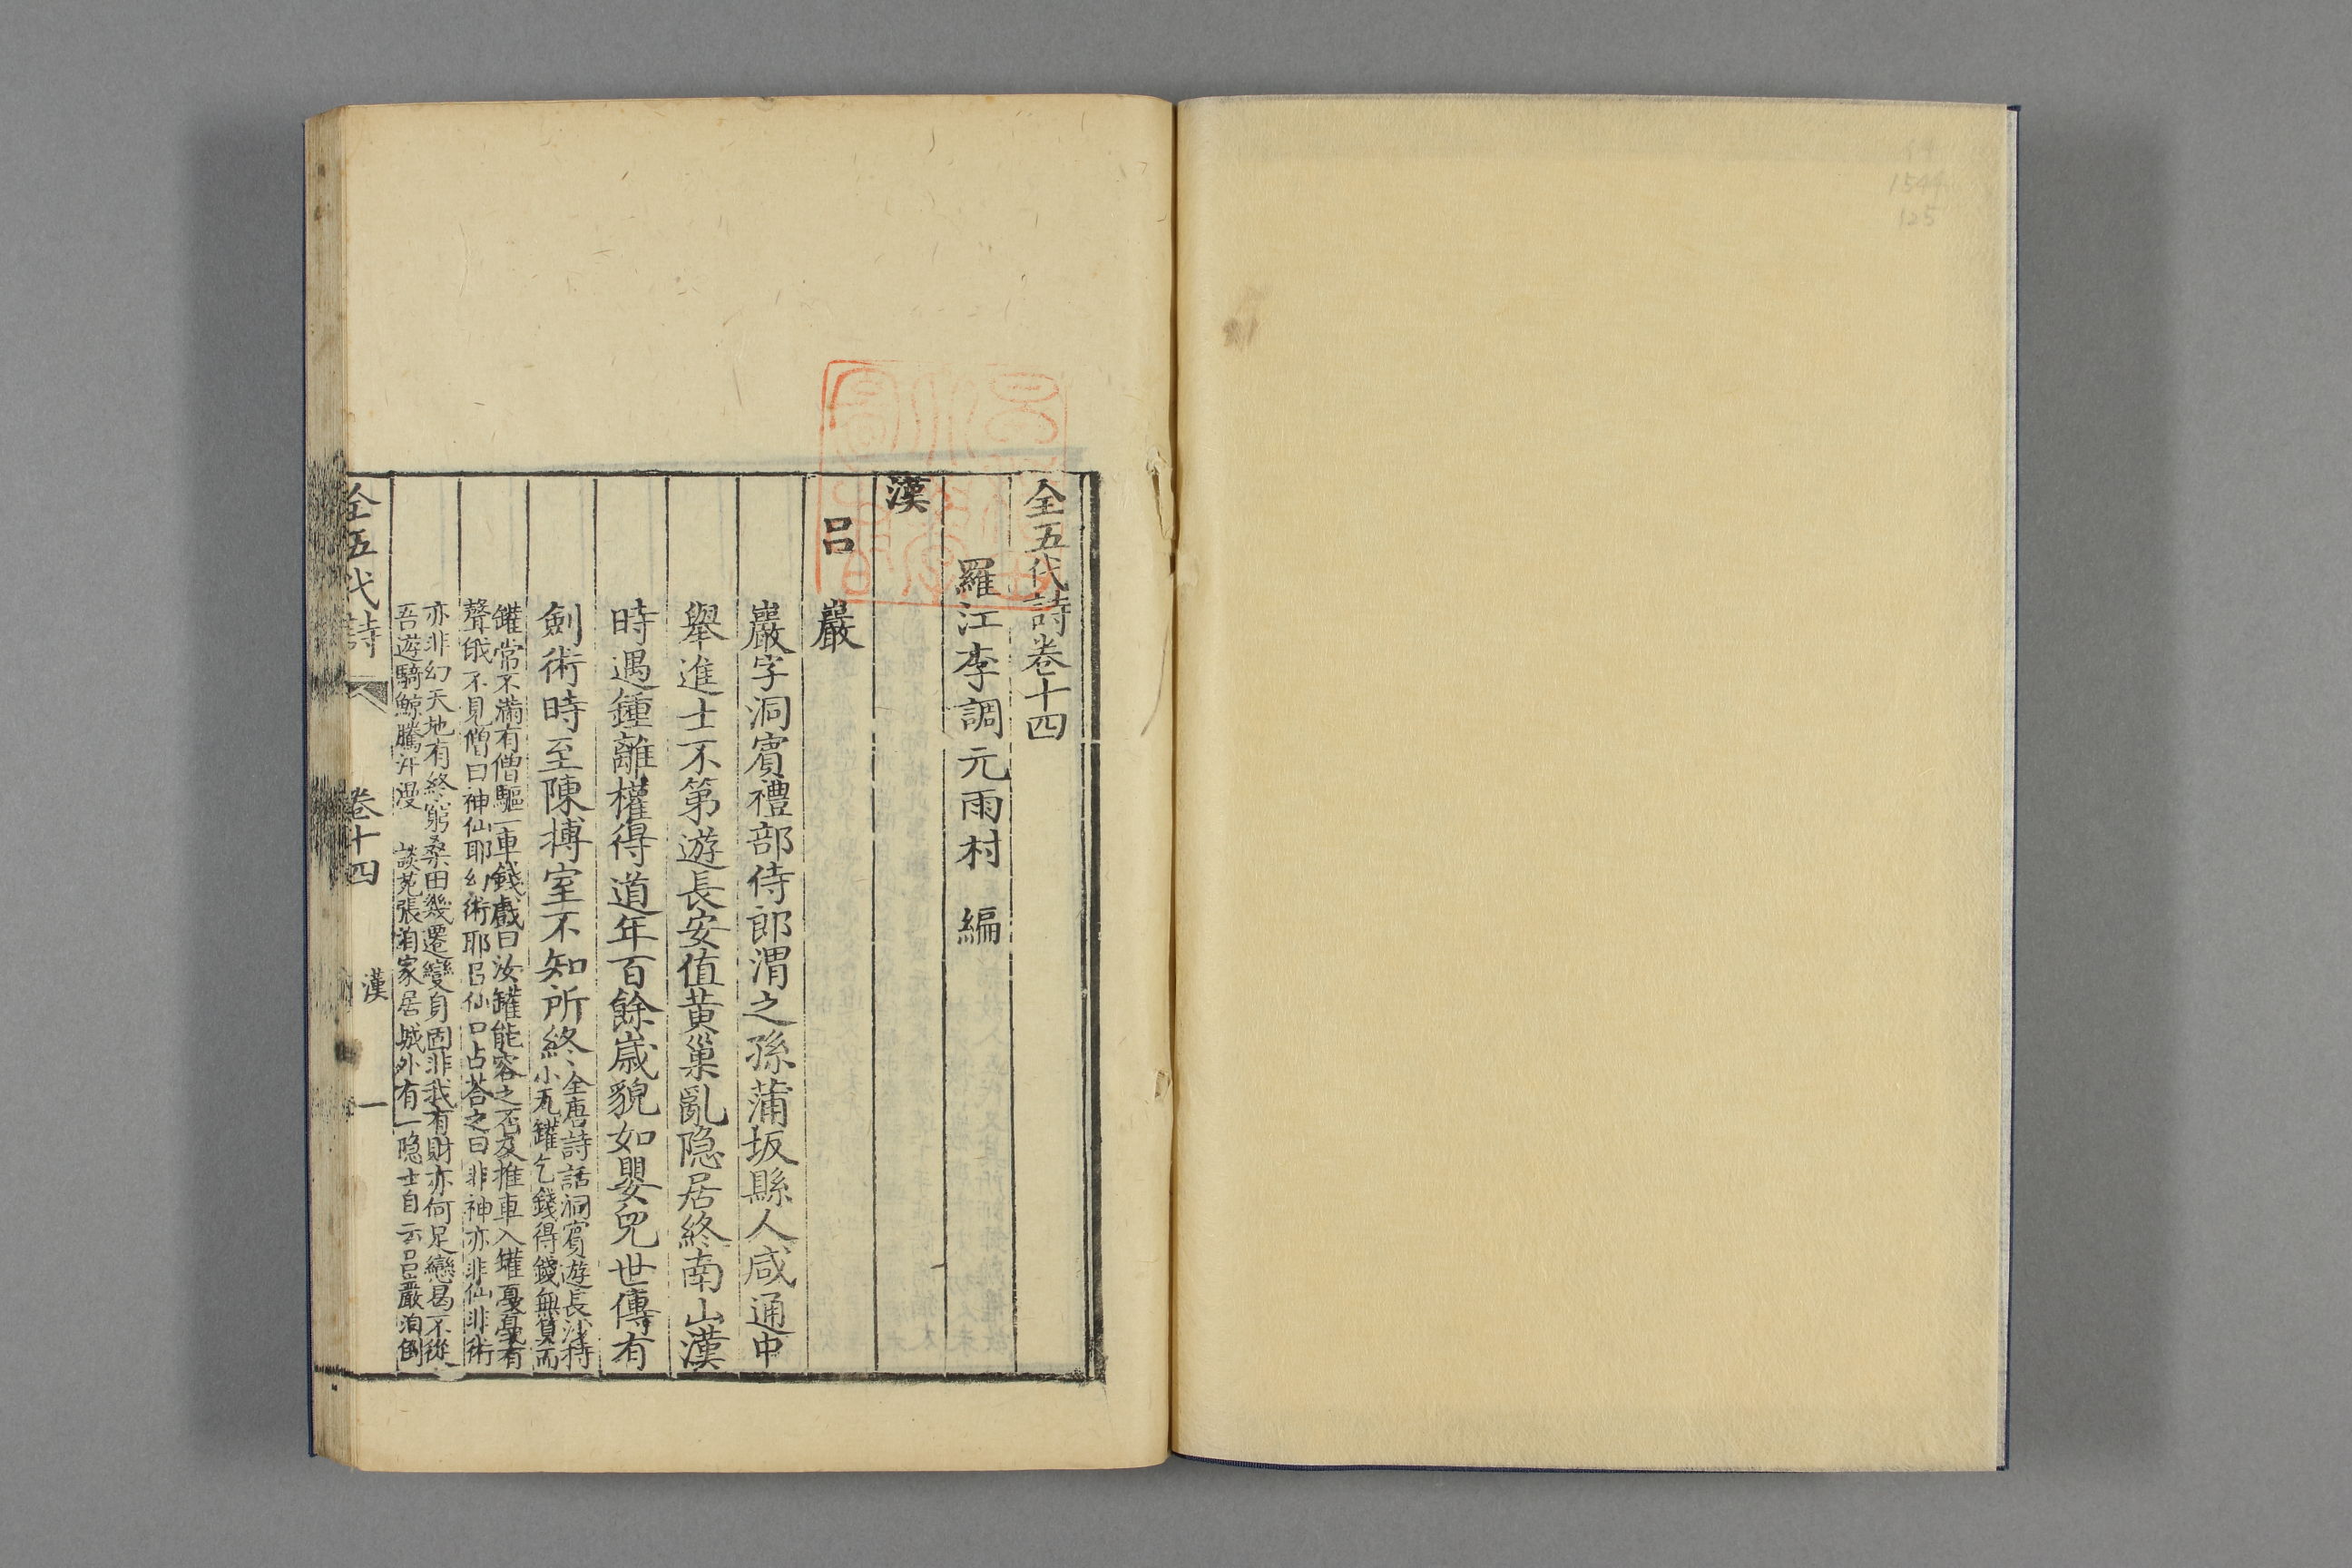 全五代詩卷十四
羅江李調元雨村　編
漢
呂　巖
巖字洞賓禮部侍郎渭之孫蒲坂縣人咸通中
舉進士不第遊長安值黃巢亂隐居終南山漢
時遇鍾離權得道年百餘歲貌如嬰兒世傳有
劍術時至陳搏室不知所終
全唐詩話洞賓遊長沙持
小瓦罐乞錢得錢無算而
罐常不滿有僧驅一車錢戲曰汝罐能容之否及推車入罐戛戛有
聲俄不見僧曰神仙耶幻術耶呂仙口占荅之曰非神亦非仙非術
亦非幻天地有終窮桑田幾遷變身固非我有財亦何足戀曷不從
吾遊騎鯨騰汗漫　談苑張洎家居城外有一隐士自云呂巖洎倒
全五代詩　卷十四　漢　一
1544
125